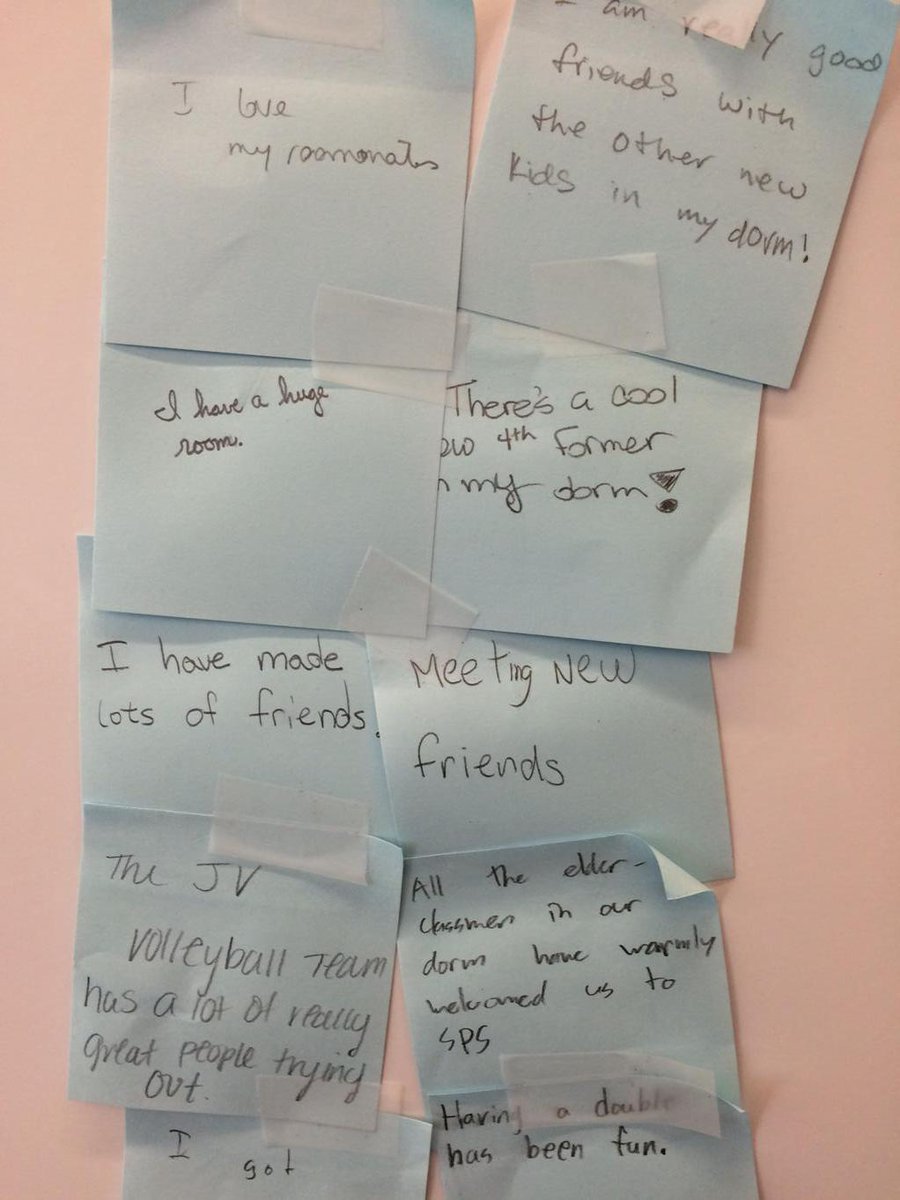 I love
my roommates
I am really good
friends with
the other new
kids in my dorm!
I have a huge
room.
There's a cool
4th former
my dorm!
I have made
lots of friends.
Meeting New
friends
The JV
volleyball Team
has a lot of really
great people trying
out.
All the elder-
classmen in our
dorm have warmly
welcomed us to
SPS
I got
Having a double
has been fun.